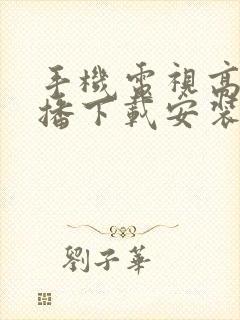 手機電視高
播下載安裝
劉子華